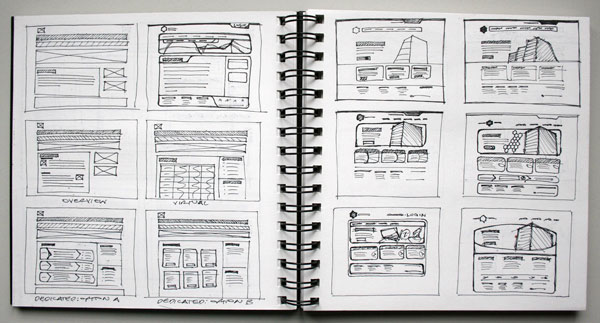 LOGIN
OVERVIEW
VIRTUAL
DEDICATED: OPTION A
DEDICATED: OPTION B
LOGIN